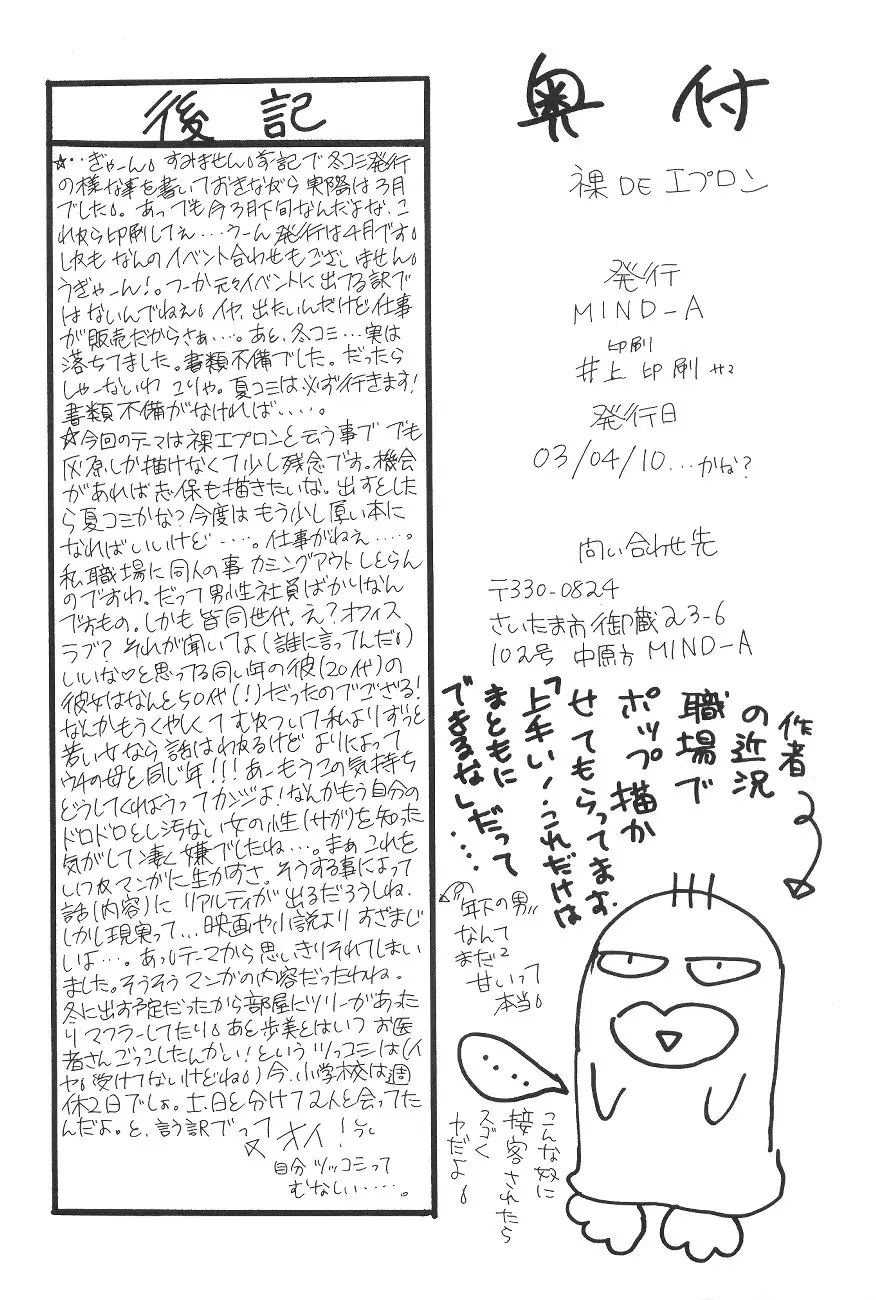 後記
☆‥ぎゃーん。すみません。前記で冬コミ発行
の様な事を書いておきながら実際は3月
でした。あっでも今3月下旬なんだよな、こ
れから印刷してぇ…うーん発行は4月です。
しかもなんのイベント合わせもございません。
うぎゃーん!。つーか元々イベントに出てる訳で
はないんでねぇ。イヤ、出たいんだけど仕事
が販売だからさぁ…。あと、冬コミ…実は
落ちてました。書類不備でした。だったら
しゃーないわ こりゃ。夏コミは必ず行きます!
書類不備がなければ‥‥。
☆今回のテーマは裸エプロンと云う事で でも
灰原しか描けなくて少し残念です。機会
があれば志保も描きたいな。出すとした
ら夏コミかな?今度はもう少し厚い本に
なればいいけど‥‥。仕事がねぇ‥‥。
私、職場に同人の事 カミングアウトしとらん
のですわ。だって男性社員ばかりなん
ですもの。しかも皆同世代。え?オフィス
ラブ? それが聞いてよ(誰に言ってんだ。)
いいな♡と思ってる同い年の彼(20代)の
彼女はなんと50代(!)だったのでござる!
なんかもうくやしくてむかついて私よりずっと
若い女なら話はわかるけど よりによって
ウチの母と同じ年!!!あーもうこの気持ち
どうしてくれようってカンジよ!なんかもう自分の
ドロドロとし汚ない女の性(サガ)を知った
気がして凄く嫌でしたね…。まぁこれを
いつかマンガに生かすさ。そうする事によって
話(内容)に リアルティが出るだろうしね.
しかし現実って…映画や小説よりすざまじ
いよ…。あっテーマから思いきりそれてしまい
ました。そうそうマンガの内容だったわね.
冬に出す予定だったから部屋にツリーがあった
りマフラーしてたり。あと歩美とはいつ お医
者さんごっこしたんかい!という ツッコミは(イ
ヤ。受けてないけどね。)今、小学校は週
休2日でしょ。土、日と分けて2人と会ってた
んだよ。と、言う訳でって
オイ!
自分ツッコミって
むなしい‥‥。
奥付
裸DEエプロン
発行
MIND-A
印刷
井上印刷サマ
発行日
03/04/10…かな?
問い合わせ先
〒330-0824
さいたま市御蔵23-6
102号 中原方 MIND-A
作者
の近況
職場で
ポップ描か
せてもらってます.
「上手い!これだけは
まともに
できるな」だって
‥‥
年下の男
なんて
まだ2
甘いって
本当。
‥‥
こんな奴に
接客されたら
スゴく
ヤだよ。